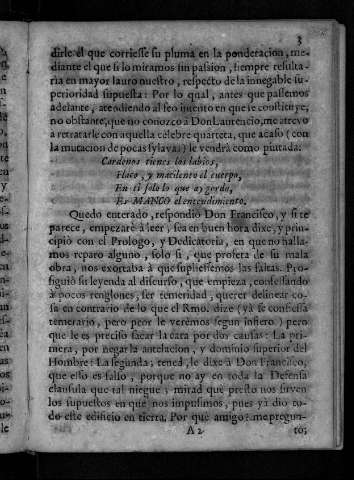 3
dirle el que corriesse su pluma en la ponderacion, me-
diante el que si lo miramos sin passion, siempre resulta-
ria en mayor lauro nuestro, respecto de la innegable su-
perioridad supuesta: Por lo qual, antes que passemos
adelante, atendiendo al feo intento en que se constituye,
no obstante, que no conozco à Don Laurencio, me atrevo
a retratarle con aquella célebre quarteta, que acaso (con
la mutacion de pocas sylavas) le vendrà como pintada:
Cardenos tienes los labios,
Flaco, y macilento el cuerpo,
En ti solo lo que ay gordo,
Es MANCO el entendimiento.
Quedo enterado, respondiò Don Francisco, y si te
parece, empezarè à leer; sea en buen hora dixe, y prin-
cipiò con el Prologo, y Dedicatoria, en que no halla-
mos reparo alguno, solo si, que profeta de su mala
obra, nos exortaba à que supliessemos las faltas. Pro-
siguiò su leyenda al discurso, que empieza, confessando
à pocos renglones, ser temeridad, querer delinear co-
sa en contrario de lo que el Rmo. dixe (yà se confiessa
temerario, pero peor le verèmos segun infiero) pero
que le es preciso sacar la cara por dos causas: La pri-
mera, por negar la antelacion, y dominio superior del
Hombre: La segunda; tened, le dixe à Don Francisco,
que esso es falso, porque no ay en toda la Defensa
clausula que tal niegue; mirad què presto nos sirven
los supuestos en que nos impusimos, pues yà dio to-
do este edificio en tierra. Por què amigo? me pregun-
A 2 tò;